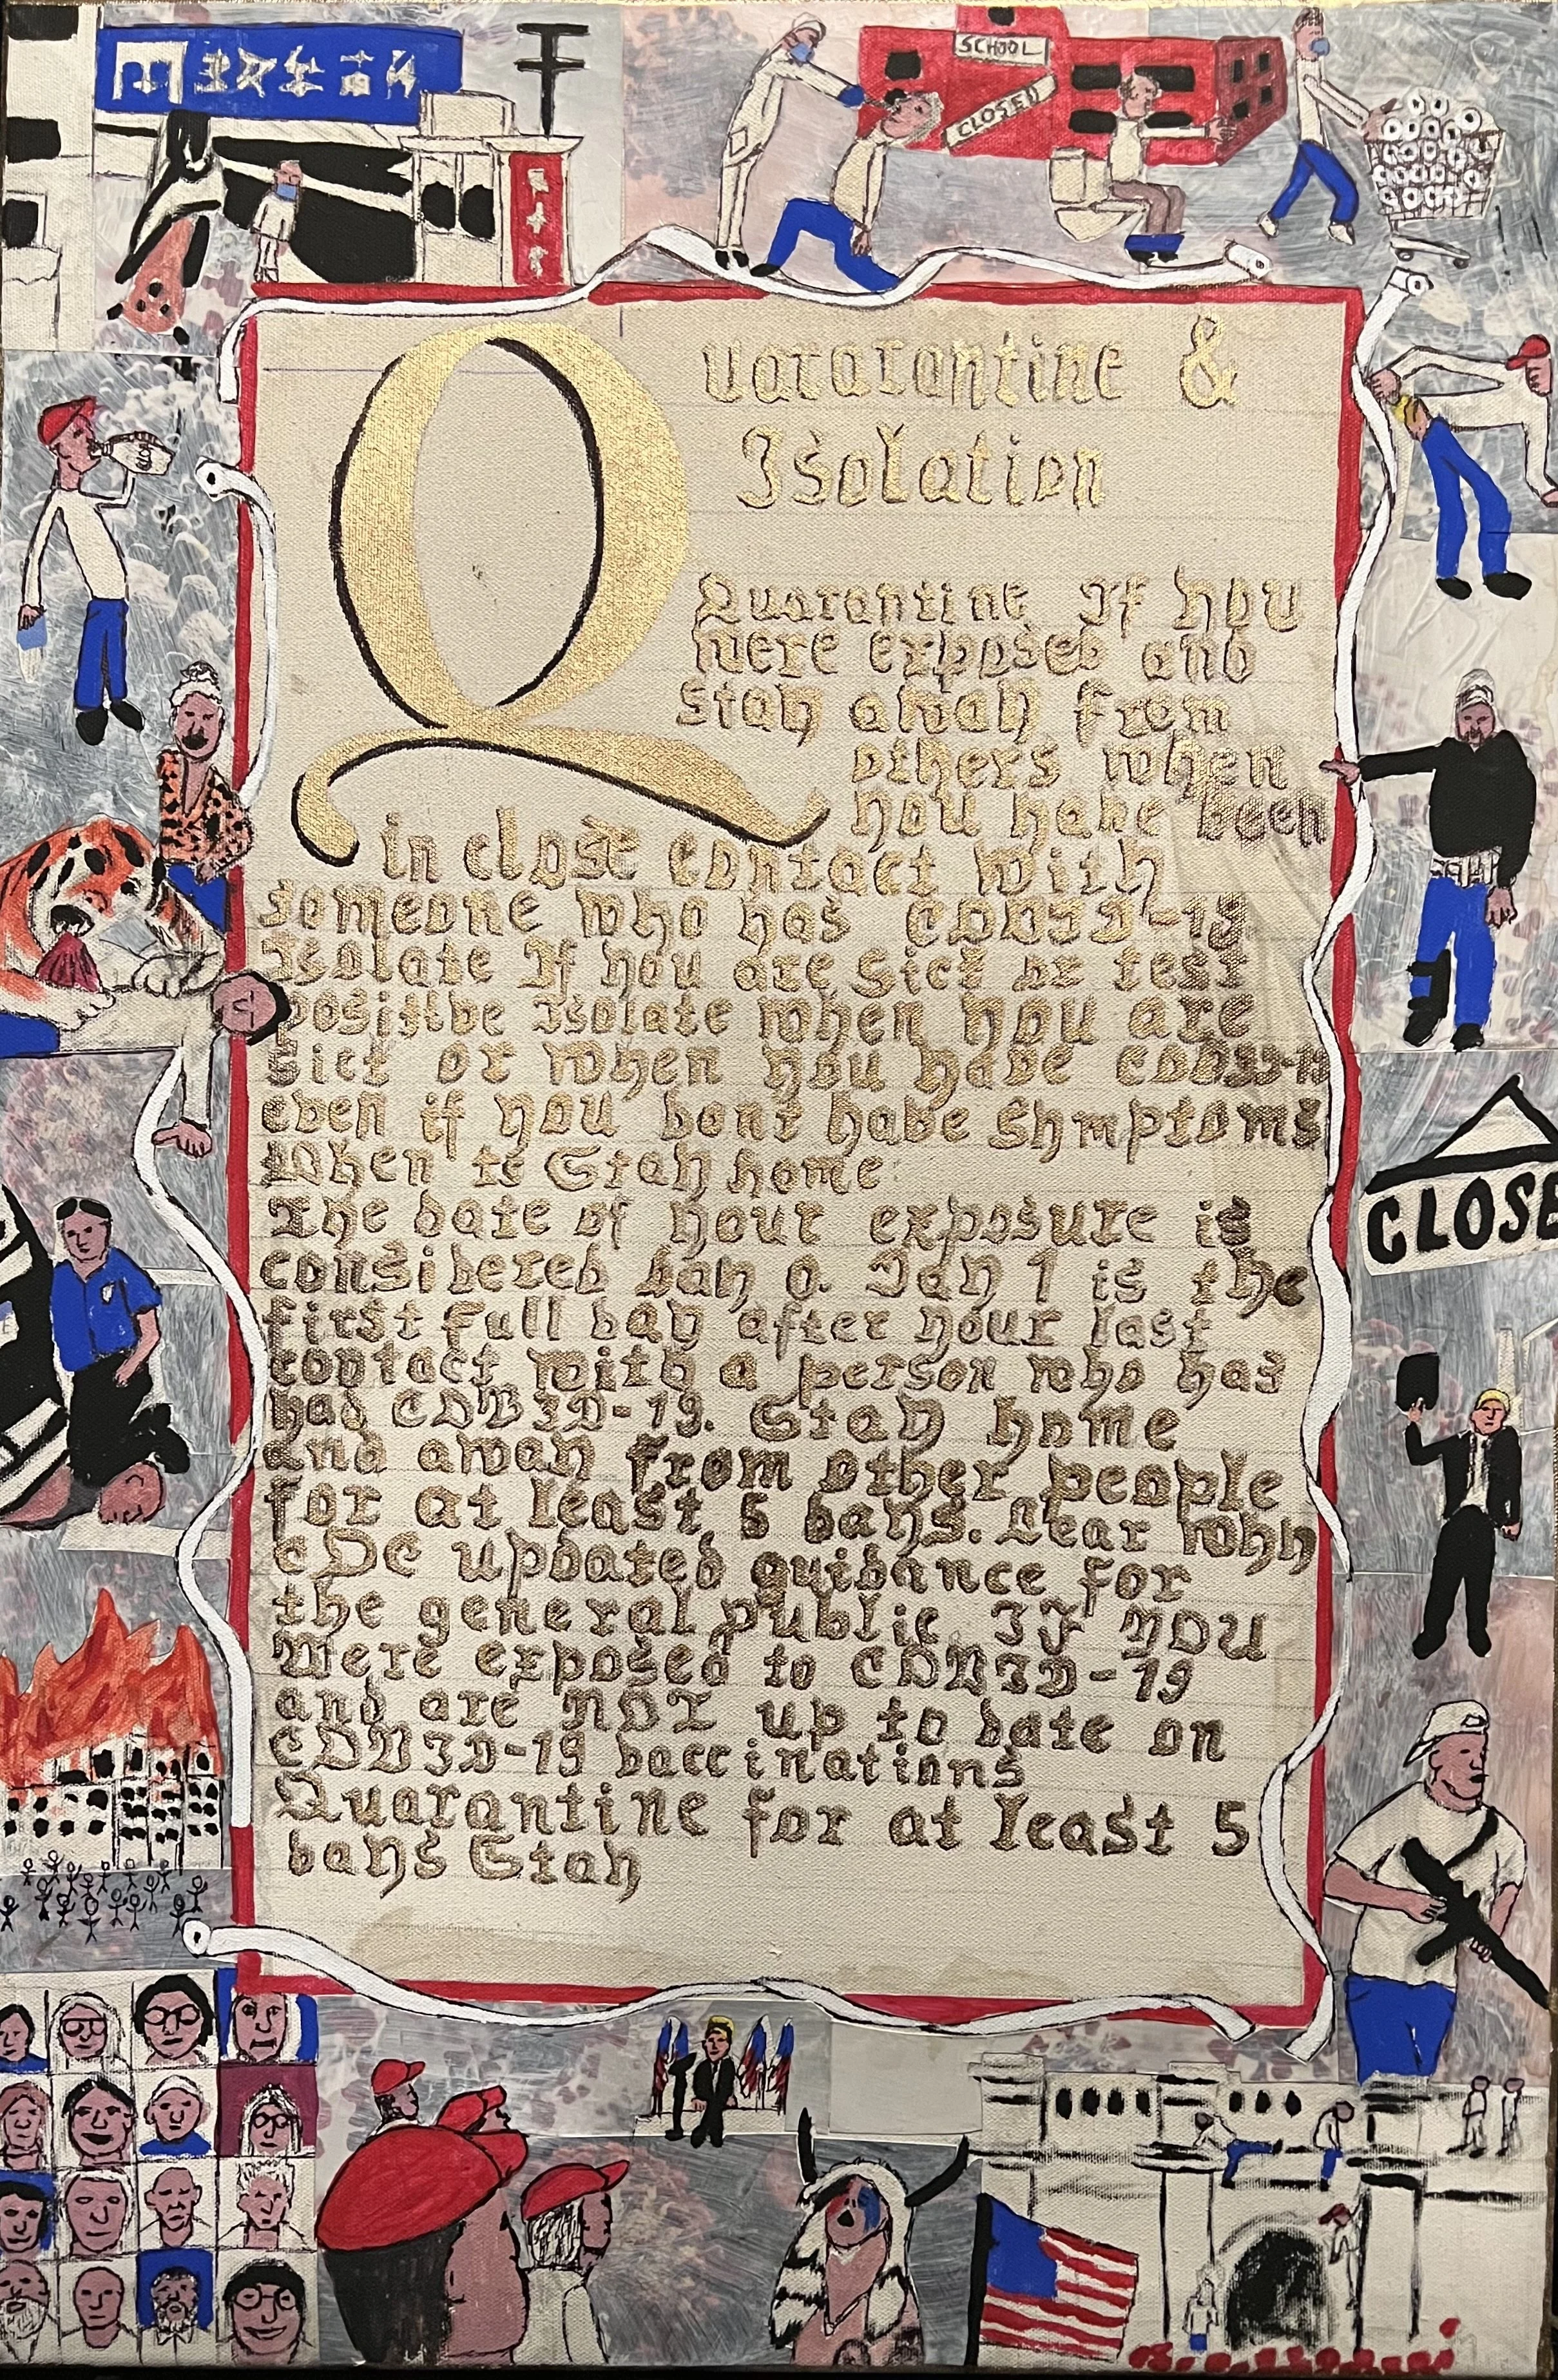 SCHOOL
CLOSED
Quararantine &
Isolation
Quarantine If you
were exposed and
Stay away from
others when
you have been
in close contact with
someone who has COVID-19
Isolate If you are Sick or test
positive Isolate when you are
Sick or when you have COVID-19
even if you dont have Symptoms
When to Stay home
The date of your exposure is
considered day 0. Day 1 is the
first full day after your last
contact with a person who has
had COVID-19. Stay home
and away from other people
for at least 5 days. Lear why
CDC updated guidance for
the general public If YOU
Were exposed to COVID-19
and are NOT up to date on
COVID-19 vaccinations
Quarantine for at least 5
days Stay
CLOSE